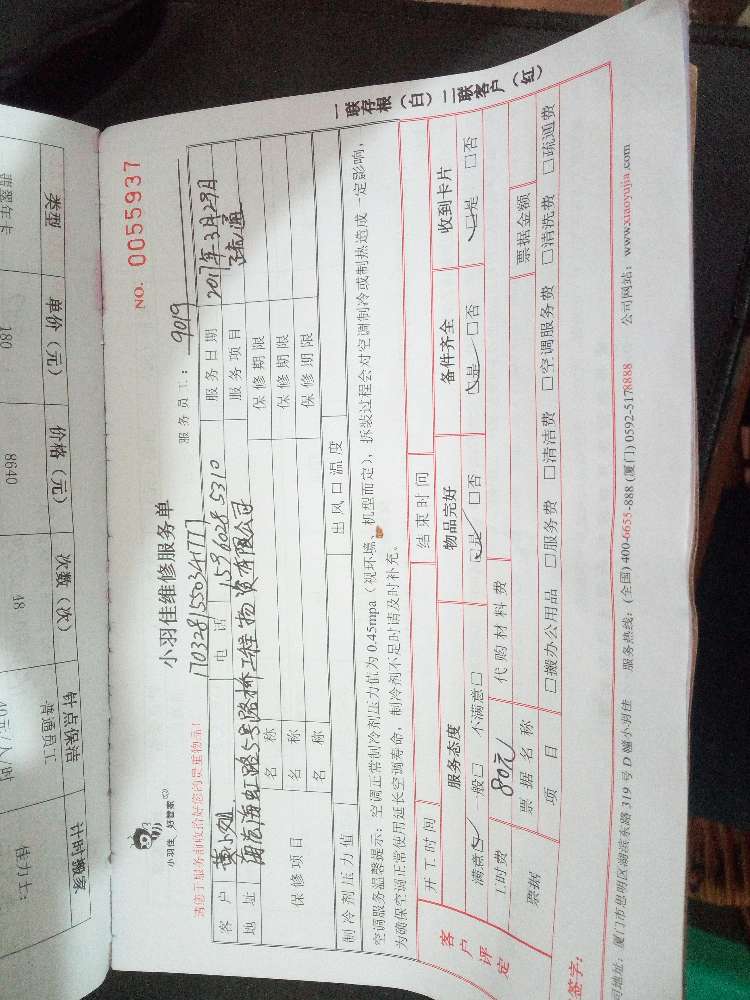 NO. 0055937
小羽佳 好管家
小羽佳维修服务单
170328155034777
服务员工： 9019
请您于服务前收拾好您的贵重物品！
客户 黄小姐 电话 15960285310 服务日期 2017年3月29日
地址 海沧海虹路5号路桥工程物资有限公司 服务项目 疏通
保修项目 名称 保修期限
名称 保修期限
名称 保修期限
制冷剂压力值 出风口温度
空调服务温馨提示：空调正常制冷剂压力值为 0.45mpa（视环境、机型而定），拆装过程会对空调制冷或制热造成一定影响，
为确保空调正常使用延长空调寿命，制冷剂不足时请及时补充。
一联存根（白）二联客户（红）
开工时间 结束时间
客户评定 服务态度 物品完好 备件齐全 收到卡片
满意☑ 一般□ 不满意□ ☑是 □否 ☑是 □否 ☑是 □否
工时费 80元 代购材料费
票据 票据名称 票据金额
项目 □搬办公用品 □服务费 □清洁费 □空调服务费 □清洗费 □疏通费
签字：
司地址：厦门市思明区湖滨东路 319 号 D 幢小羽佳 服务热线：(全国) 400-6655-888 (厦门) 0592-5178888 公司网站：www.xiaoyujia.com
类型 单价（元） 价格（元） 次数（次） 计时搬家
180 8640 48 普通员工